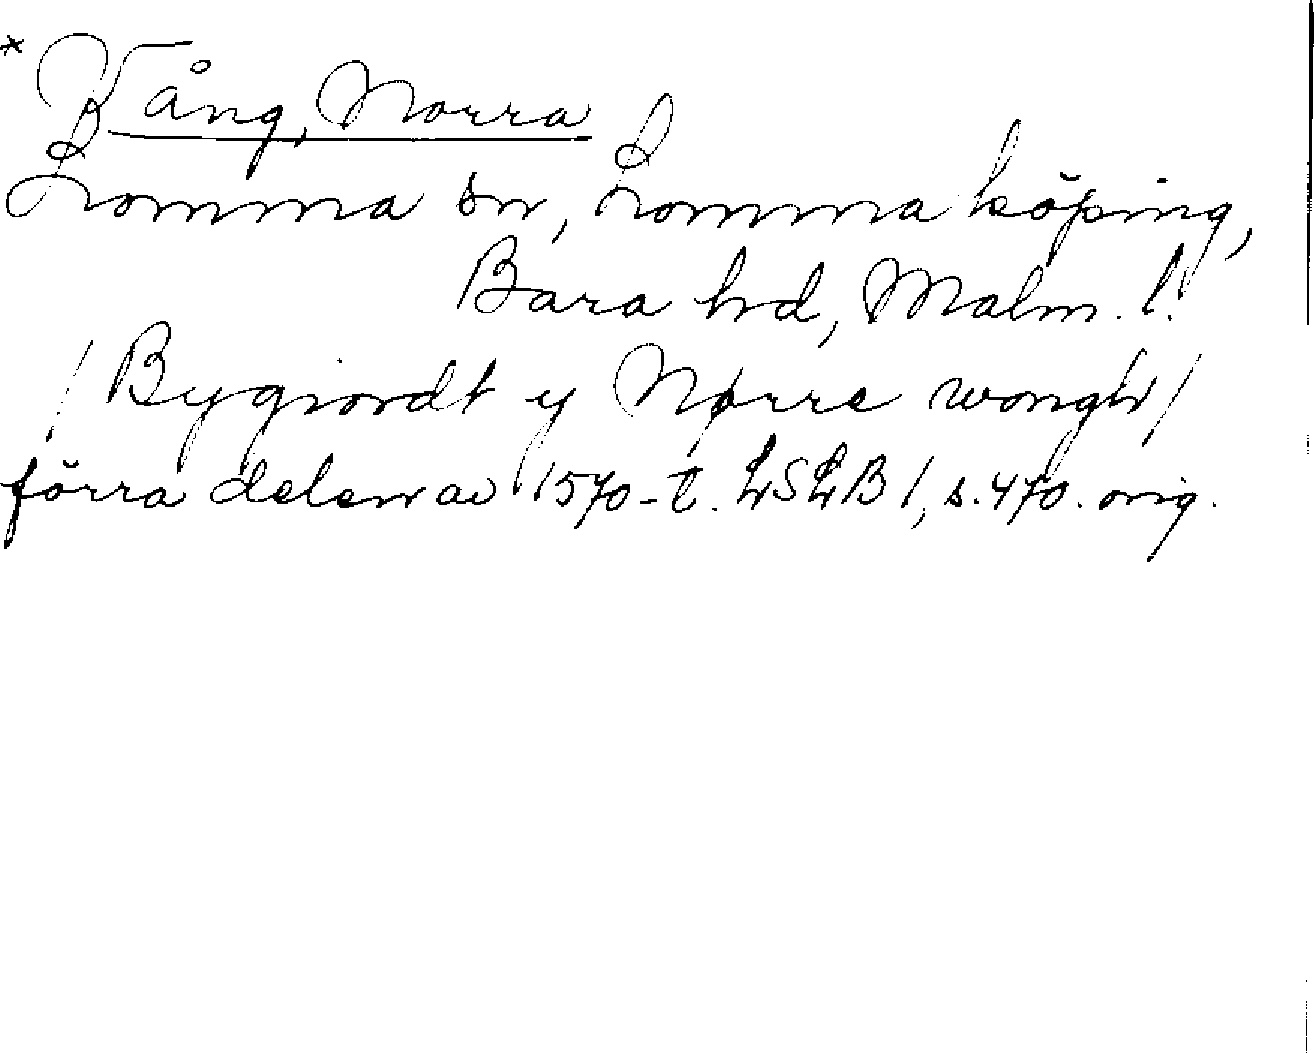 * Vång, Norra
Lomma sn, Lomma köping,
Bara hd, Malm. l.
/ Bygiordt y Nørre wongh /
förra delen av 1570-t. LSLB 1, s. 470. orig.